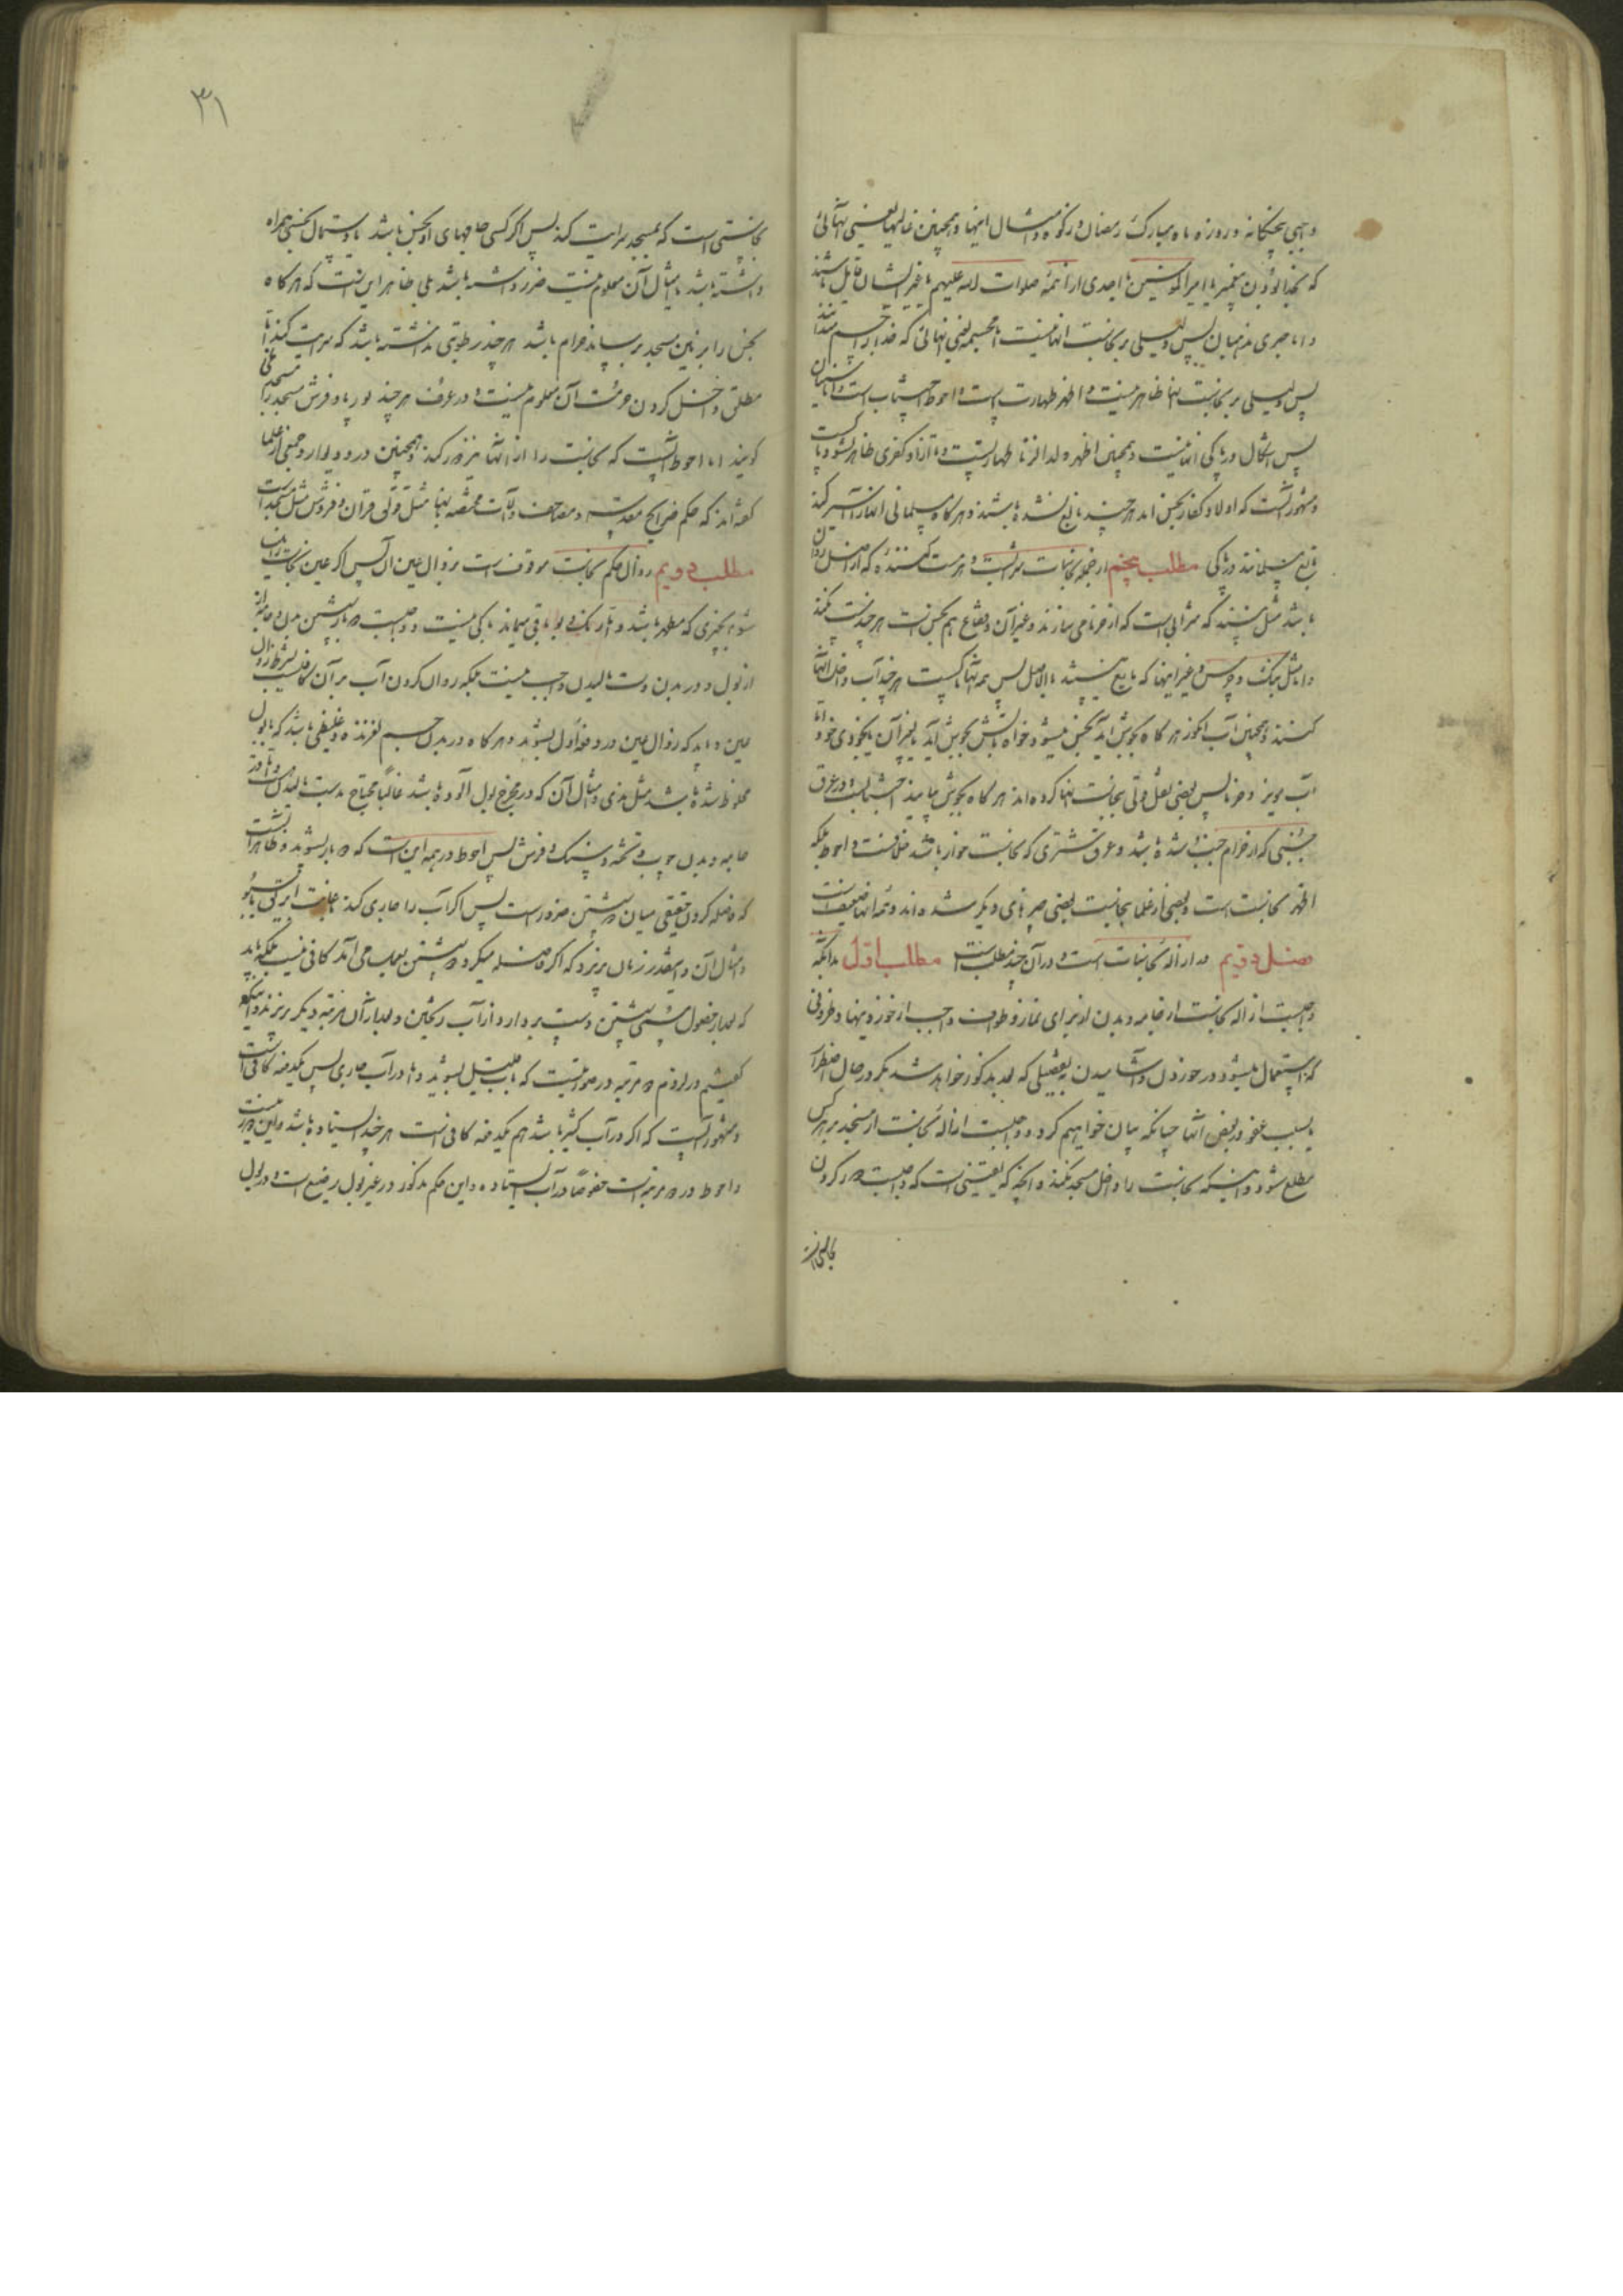 واجبی پنجگانه و روزه ماه مبارک رمضان و زکوة و امثال اینها و همچنین غالیها یعنی آنهائی
که بخدا بودن پیغمبر یا امیرالمومنین یا احدی از ائمه صلوات الله علیهم یا غیر ایشان قایل باشند
و اما جبری مذهبان پس دلیلی بر نجاست آنها نیست اما مجسمه یعنی آنهائی که خدا را جسم میدانند
پس دلیلی بر نجاست آنها ظاهر نیست و اظهر طهارت است و احوط اجتناب است و اما سنیان
پس اشکال در پاکی آنها نیست و همچنین اظهر ولد الزنا طهارتست و تا از او کفری ظاهر نشود پاکست
و مشهور آنست که اولاد کفار نجس‌اند هرچند بالغ نشده باشند و هرگاه مسلمانی ایشان را اسیر کند
تابع مسلمانند در پاکی مطلب پنجم از جمله نجاسات شرابست و هر مست کننده که از اصل روان
باشد مثل نبیذ که شرابی است که از خرما می‌سازند و غیر آن و فقاع هم نجس است هرچند مست نکند
و اما مثل بنک و چرس و غیر اینها که مایع نیستند بالاصل پس همه آنها پاکست هرچند آب داخل آنها
کنند و همچنین آب انگور هرگاه بجوش آید نجس میشود خواه بآتش بجوش آید یا بغیر آن یا بخودی خود و اما
آب مویز و خرما پس بعضی نقل قولی بنجاست آنها کرده‌اند هرگاه بجوش بیایند و در عرق
جنبی که از حرام جنب شده باشد و عرق شتری که نجاست خوار باشد خلافست و احوط بلکه
اظهر نجاست است و بعضی از علما بنجاست بعضی چیزهای دیگر شده‌اند و همه آنها ضعیف است
فصل دویم در ازاله نجاسات است و در آن چند مطلب است مطلب اول بدانکه
واجبست ازاله نجاست از جامه و بدن از برای نماز و طواف واجب و از خوردنیها و ظروفی
که استعمال میشود در خوردن و آشامیدن بتفصیلی که بعد مذکور خواهد شد مگر در حال اضطرار
یا بسبب عفو در بعضی آنها چنانکه بیان خواهیم کرد و واجبست ازاله نجاست از مسجد بر هر کس
مطلع شود و اینکه نجاست را داخل مسجد نکند و آنچه که یقینی است که واجبست دور کردن
نجاستی است که بمسجد سرایت کند پس اگر کسی جامهای او نجس باشد یا دستمال نجسی همراه
داشته باشد یا امثال آن معلوم نیست ضرر داشته باشد بلی ظاهر این است که هرگاه
نجس را بزمین مسجد برساند حرام باشد هرچند رطوبتی نداشته باشد که سرایت کند اما
مطلق داخل کردن حرمت آن معلوم نیست و در عرف هر چند بوریا و فرش مسجد را مسجد نمی
گویند اما احوط آنست که نجاست را از آنها نیز دور کند و همچنین در و دیوار و جمعی از علما
گفته‌اند که حکم ضرایح مقدسه و مصاحف و آلات مختصه بآنها مثل قوتی قرآن و فروش مثل مسجد است
مطلب دویم زوال حکم نجاست موقوف است بزوال عین آن پس اگر عین نجاست زایل
شود بچیزی که مطهر باشد و اثر رنک و بو باقی بماند باکی نیست و واجبست دو بار شستن بدن و جامه را
از بول و در بدن دست مالیدن واجب نیست بلکه روان کردن آب بر آن کافیست بشرط زوال
عین و باید که زوال عین در دفعه اول بشود و هرگاه در بدن جسم لغزنده و غلیظی باشد که با بول
مخلوط شده باشد مثل مذی و امثال آن که در مخرج بول آلوده باشد غالبا محتاج بدست مالیدنست و اما در
جامه و بدل چوب و تخته و سنک و فرش پس احوط در همه این است که دو بار بشوید و ظاهرا آنست
که فاصله کردن حقیقی میان دو شستن ضرور است پس اگر آب را جاری کند بعلت ابریقی یا سبو
و امثال آن و اینقدر زمان بریزد که اگر فاصله میکرد دو شستن بحساب می آمد کافی نیست بلکه باید
که بعد از حصول مسمی شستن دست بردارد از آب ریختن و بعد از آن مرتبه دیگر بریزند و اینکه
گفتیم در لزوم دو مرتبه در صورتیست که بآب قلیل بشوید و اما در آب جاری پس یکدفعه کافی است
و مشهور آنست که اگر در آب کثیر باشد هم یکدفعه کافی است هرچند ایستاده باشد و این دور نیست
و احوط در دو مرتبه است خصوصا در آب ایستاده و این حکم مذکور در غیر بول رضیع است و در بول
۳۱